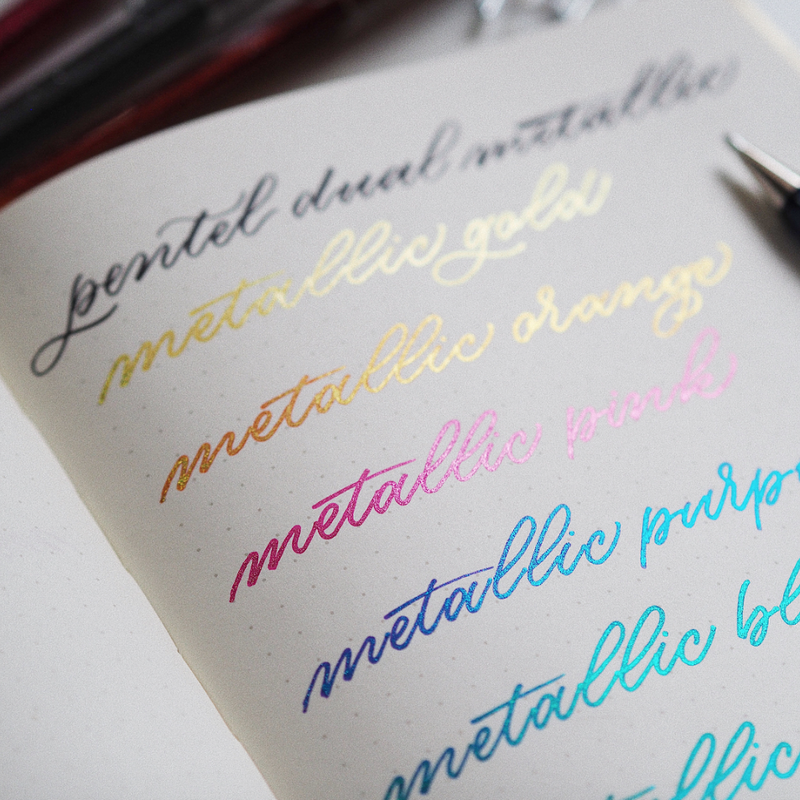 pentel dual metallic
metallic gold
metallic orange
metallic pink
metallic purp
metallic bl